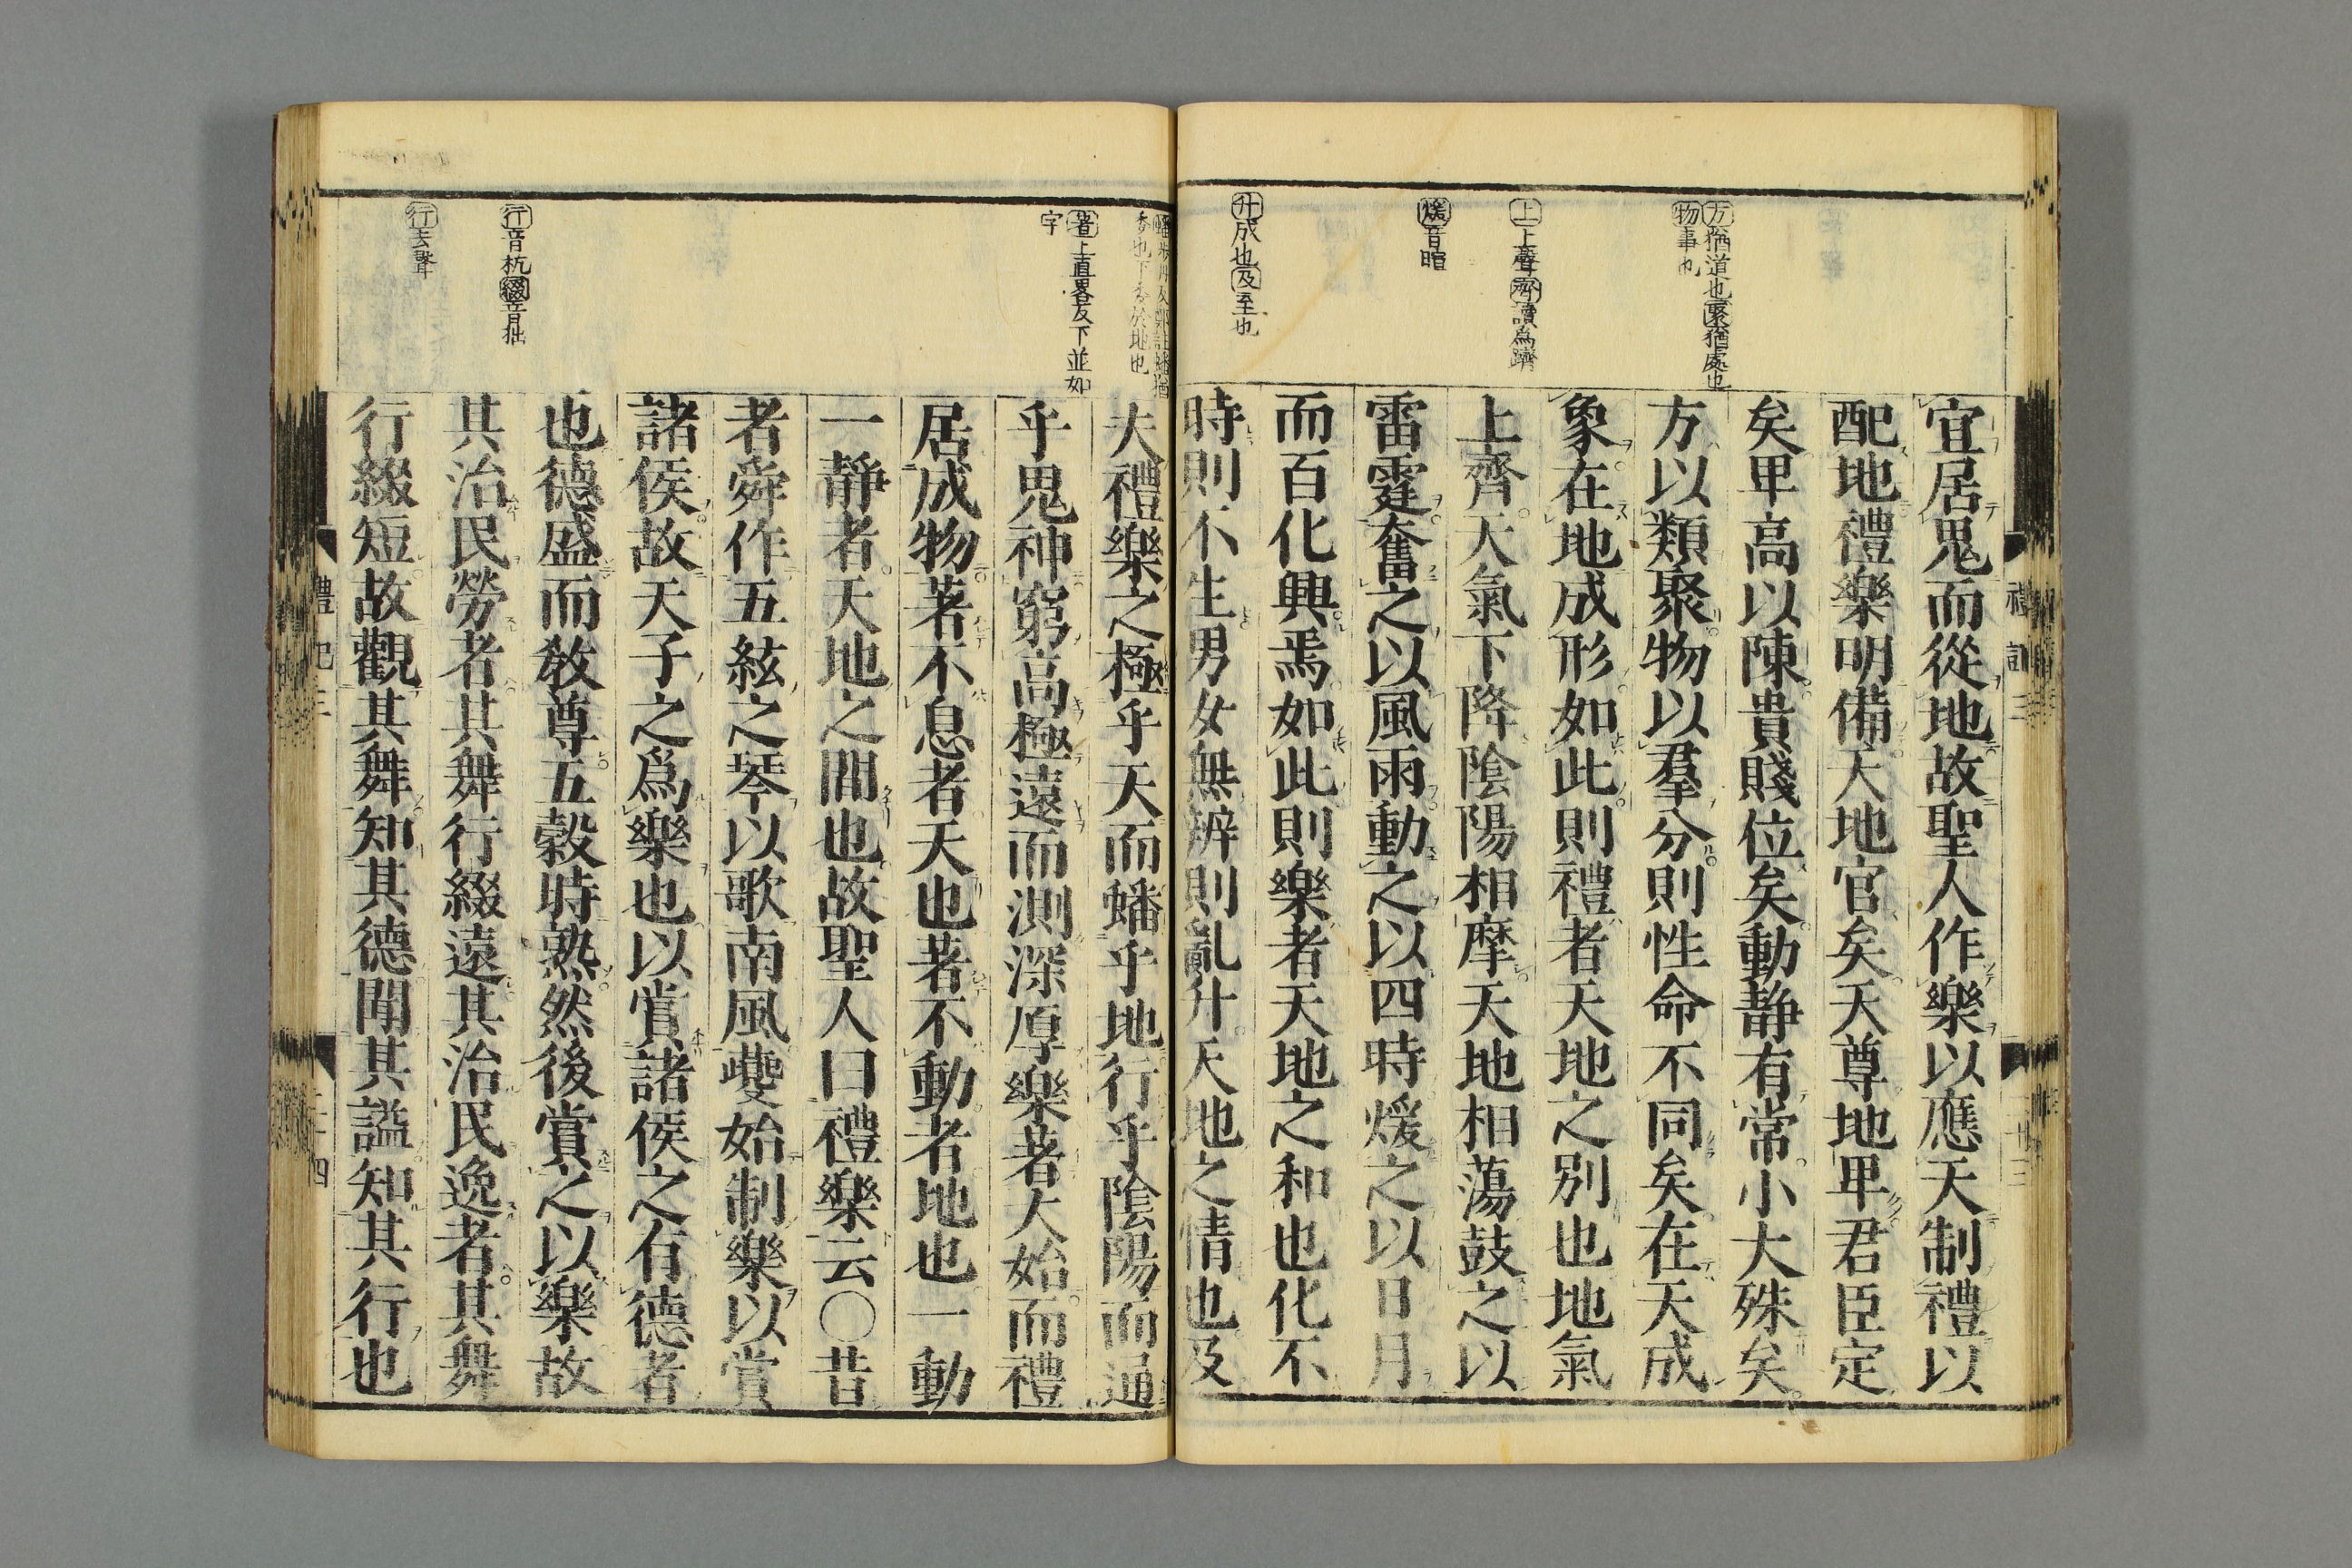 方猶道也聚猶處也
物事也
上上聲齊讀爲躋
煖音暄
升成也及至也
宜居鬼而從地故聖人作樂以應天制禮以
配地禮樂明備天地官矣天尊地𤰞君臣定
矣𤰞高以陳貴賤位矣動静有常小大殊矣
方以類聚物以羣分則性命不同矣在天成
象在地成形如此則禮者天地之别也地氣
上齊天氣下降陰陽相摩天地相蕩鼓之以
雷霆奮之以風雨動之以四時煖之以日月
而百化興焉如此則樂者天地之和也化不
時則不生男女無辨則亂升天地之情也及
著上直畧反下並如
字
行音杭綴音拙
行去聲
夫禮樂之極乎天而蟠乎地行乎陰陽而通
乎鬼神窮高極遠而測深厚樂著大始而禮
居成物著不息者天也著不動者地也一動
一静者天地之間也故聖人曰禮樂云〇昔
者舜作五絃之琴以歌南風夔始制樂以賞
諸侯故天子之爲樂也以賞諸侯之有德者
也德盛而敎尊五穀時熟然後賞之以樂故
其治民勞者其舞行綴遠其治民逸者其舞
行綴短故觀其舞知其德聞其謚知其行也
禮記三
二十四